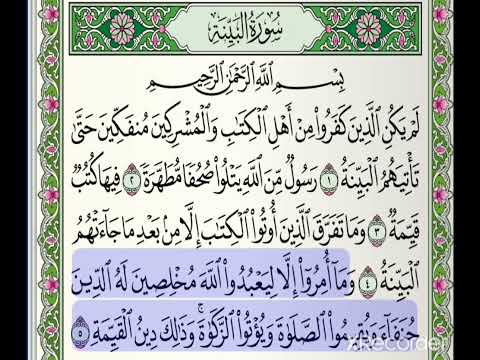 سُورَةُ البَيِّنَةِ
بِسْمِ اللَّهِ الرَّحْمَٰنِ الرَّحِيمِ
لَمْ يَكُنِ الَّذِينَ كَفَرُوا مِنْ أَهْلِ الْكِتَابِ وَالْمُشْرِكِينَ مُنفَكِّينَ حَتَّىٰ
تَأْتِيَهُمُ الْبَيِّنَةُ ١ رَسُولٌ مِّنَ اللَّهِ يَتْلُوا صُحُفًا مُّطَهَّرَةً ٢ فِيهَا كُتُبٌ
قَيِّمَةٌ ٣ وَمَا تَفَرَّقَ الَّذِينَ أُوتُوا الْكِتَابَ إِلَّا مِن بَعْدِ مَا جَاءَتْهُمُ
الْبَيِّنَةُ ٤ وَمَا أُمِرُوا إِلَّا لِيَعْبُدُوا اللَّهَ مُخْلِصِينَ لَهُ الدِّينَ
حُنَفَاءَ وَيُقِيمُوا الصَّلَوٰةَ وَيُؤْتُوا الزَّكَوٰةَ ۚ وَذَٰلِكَ دِينُ الْقَيِّمَةِ ٥